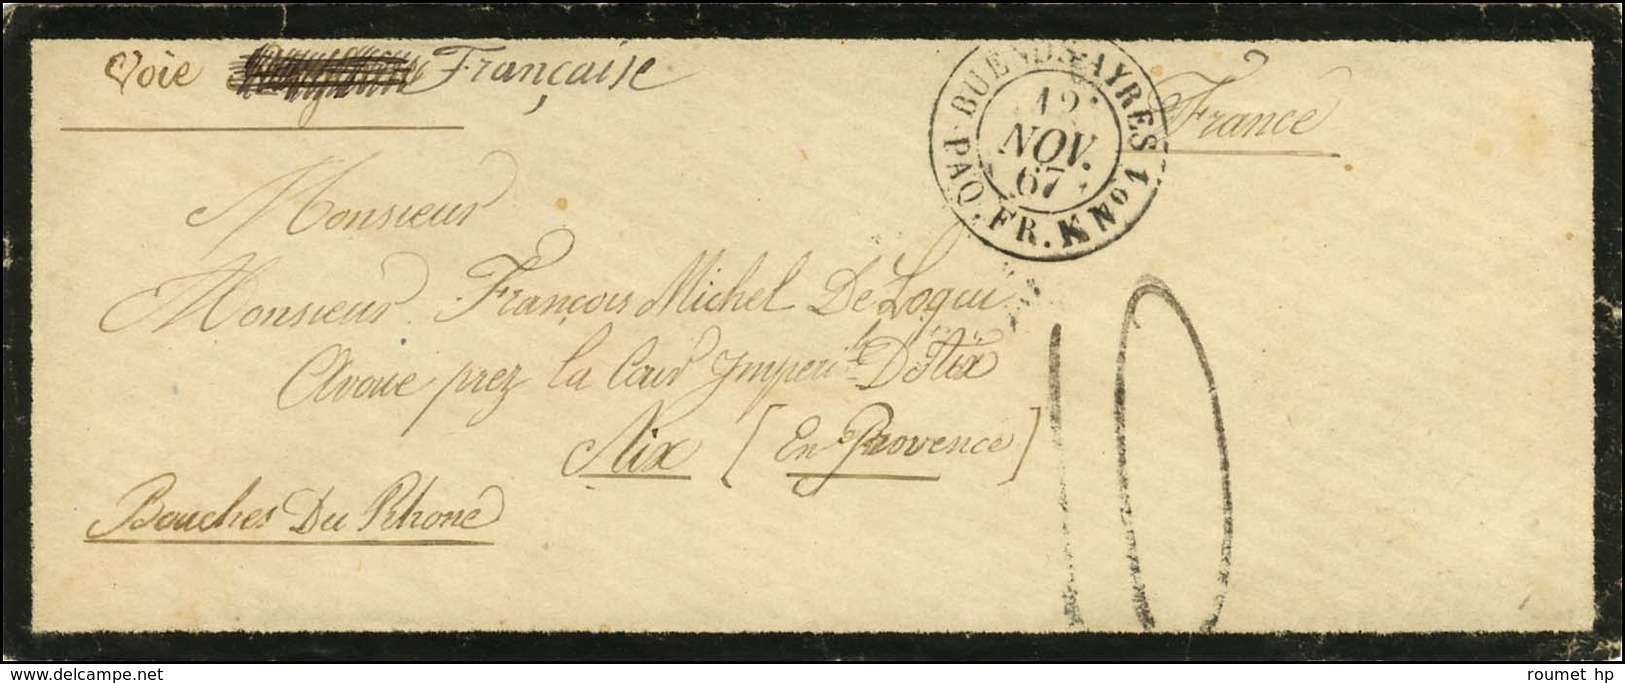 Voie Française
BUENOS-AYRES
12
NOV.
67
PAQ. FR. K No 1
France
Monsieur
Monsieur François Michel De Loqui
Avoue prez la Cour Imperi le D'Aix
Aix [En Provence]
Bouches Du Rhone
10
roumet hp